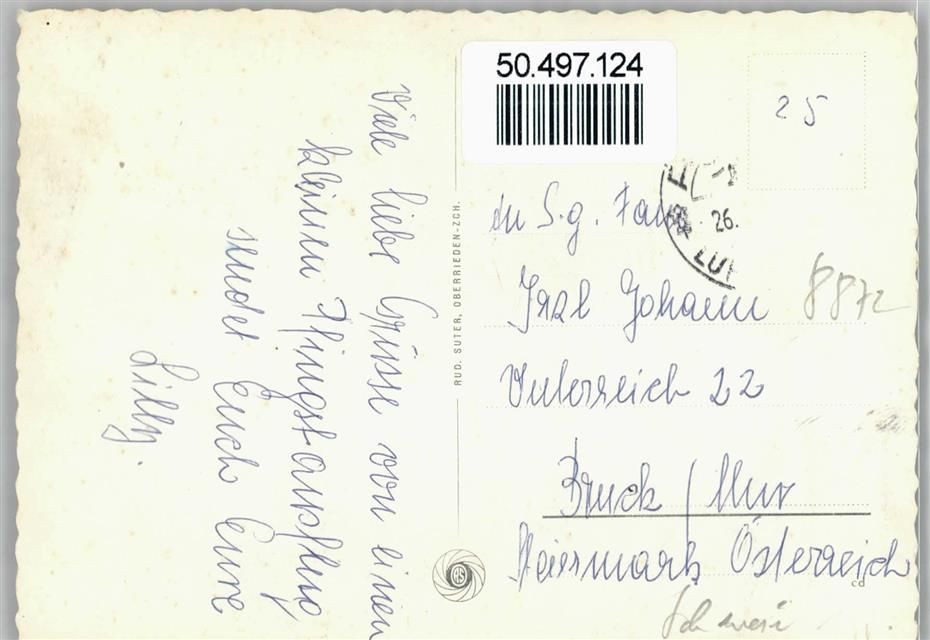 Viele liebe Grüsse von einen
kleinen Pfingstausflug
sendet Euch Eure
Lilly.
RUD. SUTER, OBERRIEDEN-ZCH.
RS
50.497.124
25
26.
LU
an S.g. Fam
Irzl Johann
8872
Unterreich 22
Bruck / Mur
Steiermark Österreich
cd
Schweiz